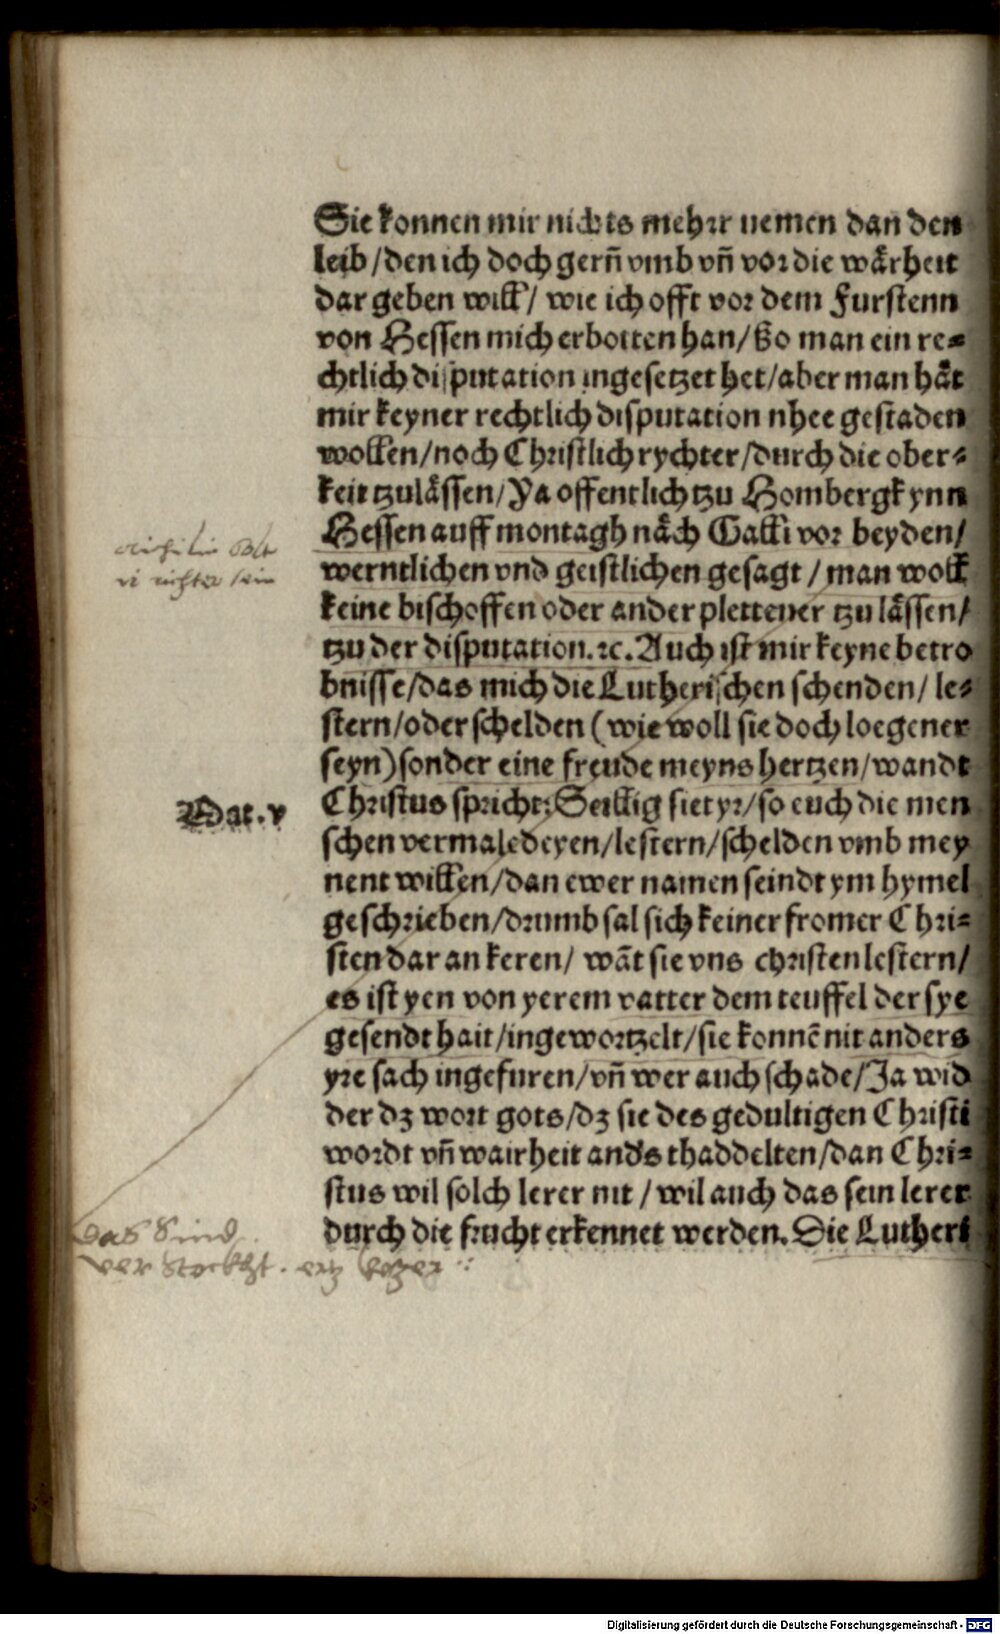 Sie konnen mir nichts mehrr nemen dan den
leib/den ich doch gern̄ vmb vn̄ vor die wårheit
dar geben will/ wie ich offt vor dem Furstenn
von Hessen mich erbotten han/ßo man ein re-
chtlich disputation ingesetzet het/aber man håt
mir keyner rechtlich disputation nhee gestaden
wollen/noch Christlich rychter/durch die ober-
keit tzulåssen/Ya offentlich tzu Hombergk ynn
Hessen auff montagh nåch Galli vor beyden/
werntlichen vnd geistlichen gesagt / man woll
keine bischoffen oder ander plettener tzu låssen/
tzu der disputation.ꝛc. Auch ist mir keyne betro
bnisse/das mich die Lutherischen schenden/ le-
stern/oder schelden (wie woll sie doch loegener
seyn) sonder eine freude meyns hertzen/wandt
Mat.v
Christus spricht: Seillig siet yr/so euch die men
schen vermaledeyen/lestern/schelden vmb mey
nent willen/dan ewer namen seindt ym hymel
geschrieben/drumb sal sich keiner fromer Chri-
sten dar an keren/ wāt sie vns christen lestern/
es ist yen von yerem vatter dem teuffel der sye
gesendt hait/ingewortzelt/sie konnē nit anders
yre sach ingefuren/vn̄ wer auch schade/Ja wid
der dz wort gots/dz sie des gedultigen Christi
wordt vn̄ wairheit anders thaddelten/dan Chri-
stus wil solch lerer nit / wil auch das sein lerer
durch die frucht erkennet werden. Die Lutheri
das Sind
ver stockht. ertz ketzer
Digitalisierung gefördert durch die Deutsche Forschungsgemeinschaft - DFG